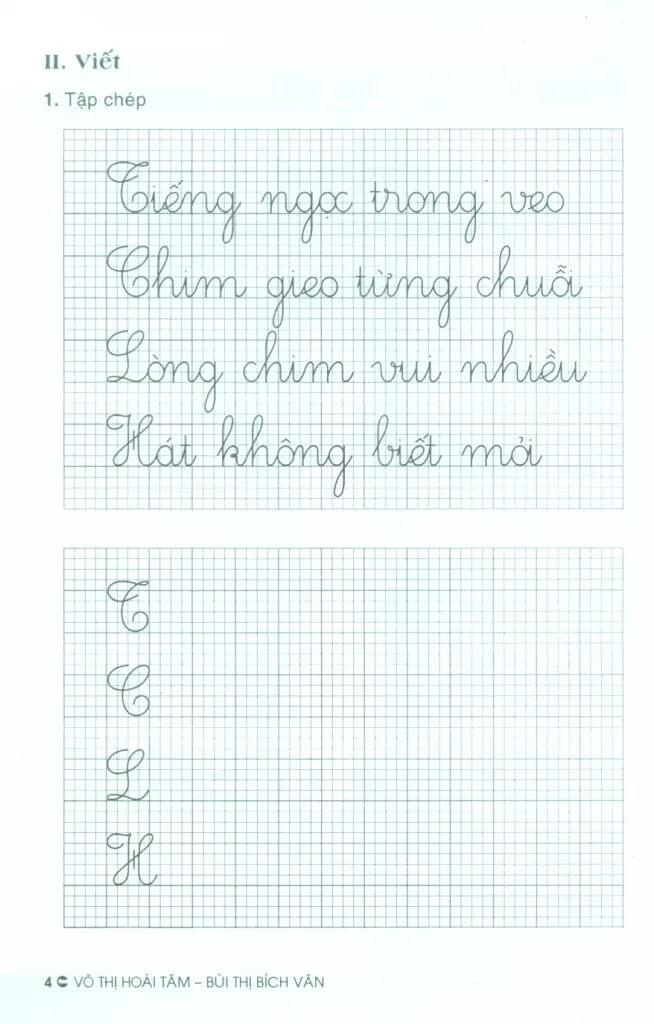 II. Viết
1. Tập chép
Tiếng ngọc trong veo
Chim gieo từng chuỗi
Lòng chim vui nhiều
Hát không biết mỏi
T
C
L
H
4 VÕ THỊ HOÀI TÂM – BÙI THỊ BÍCH VÂN